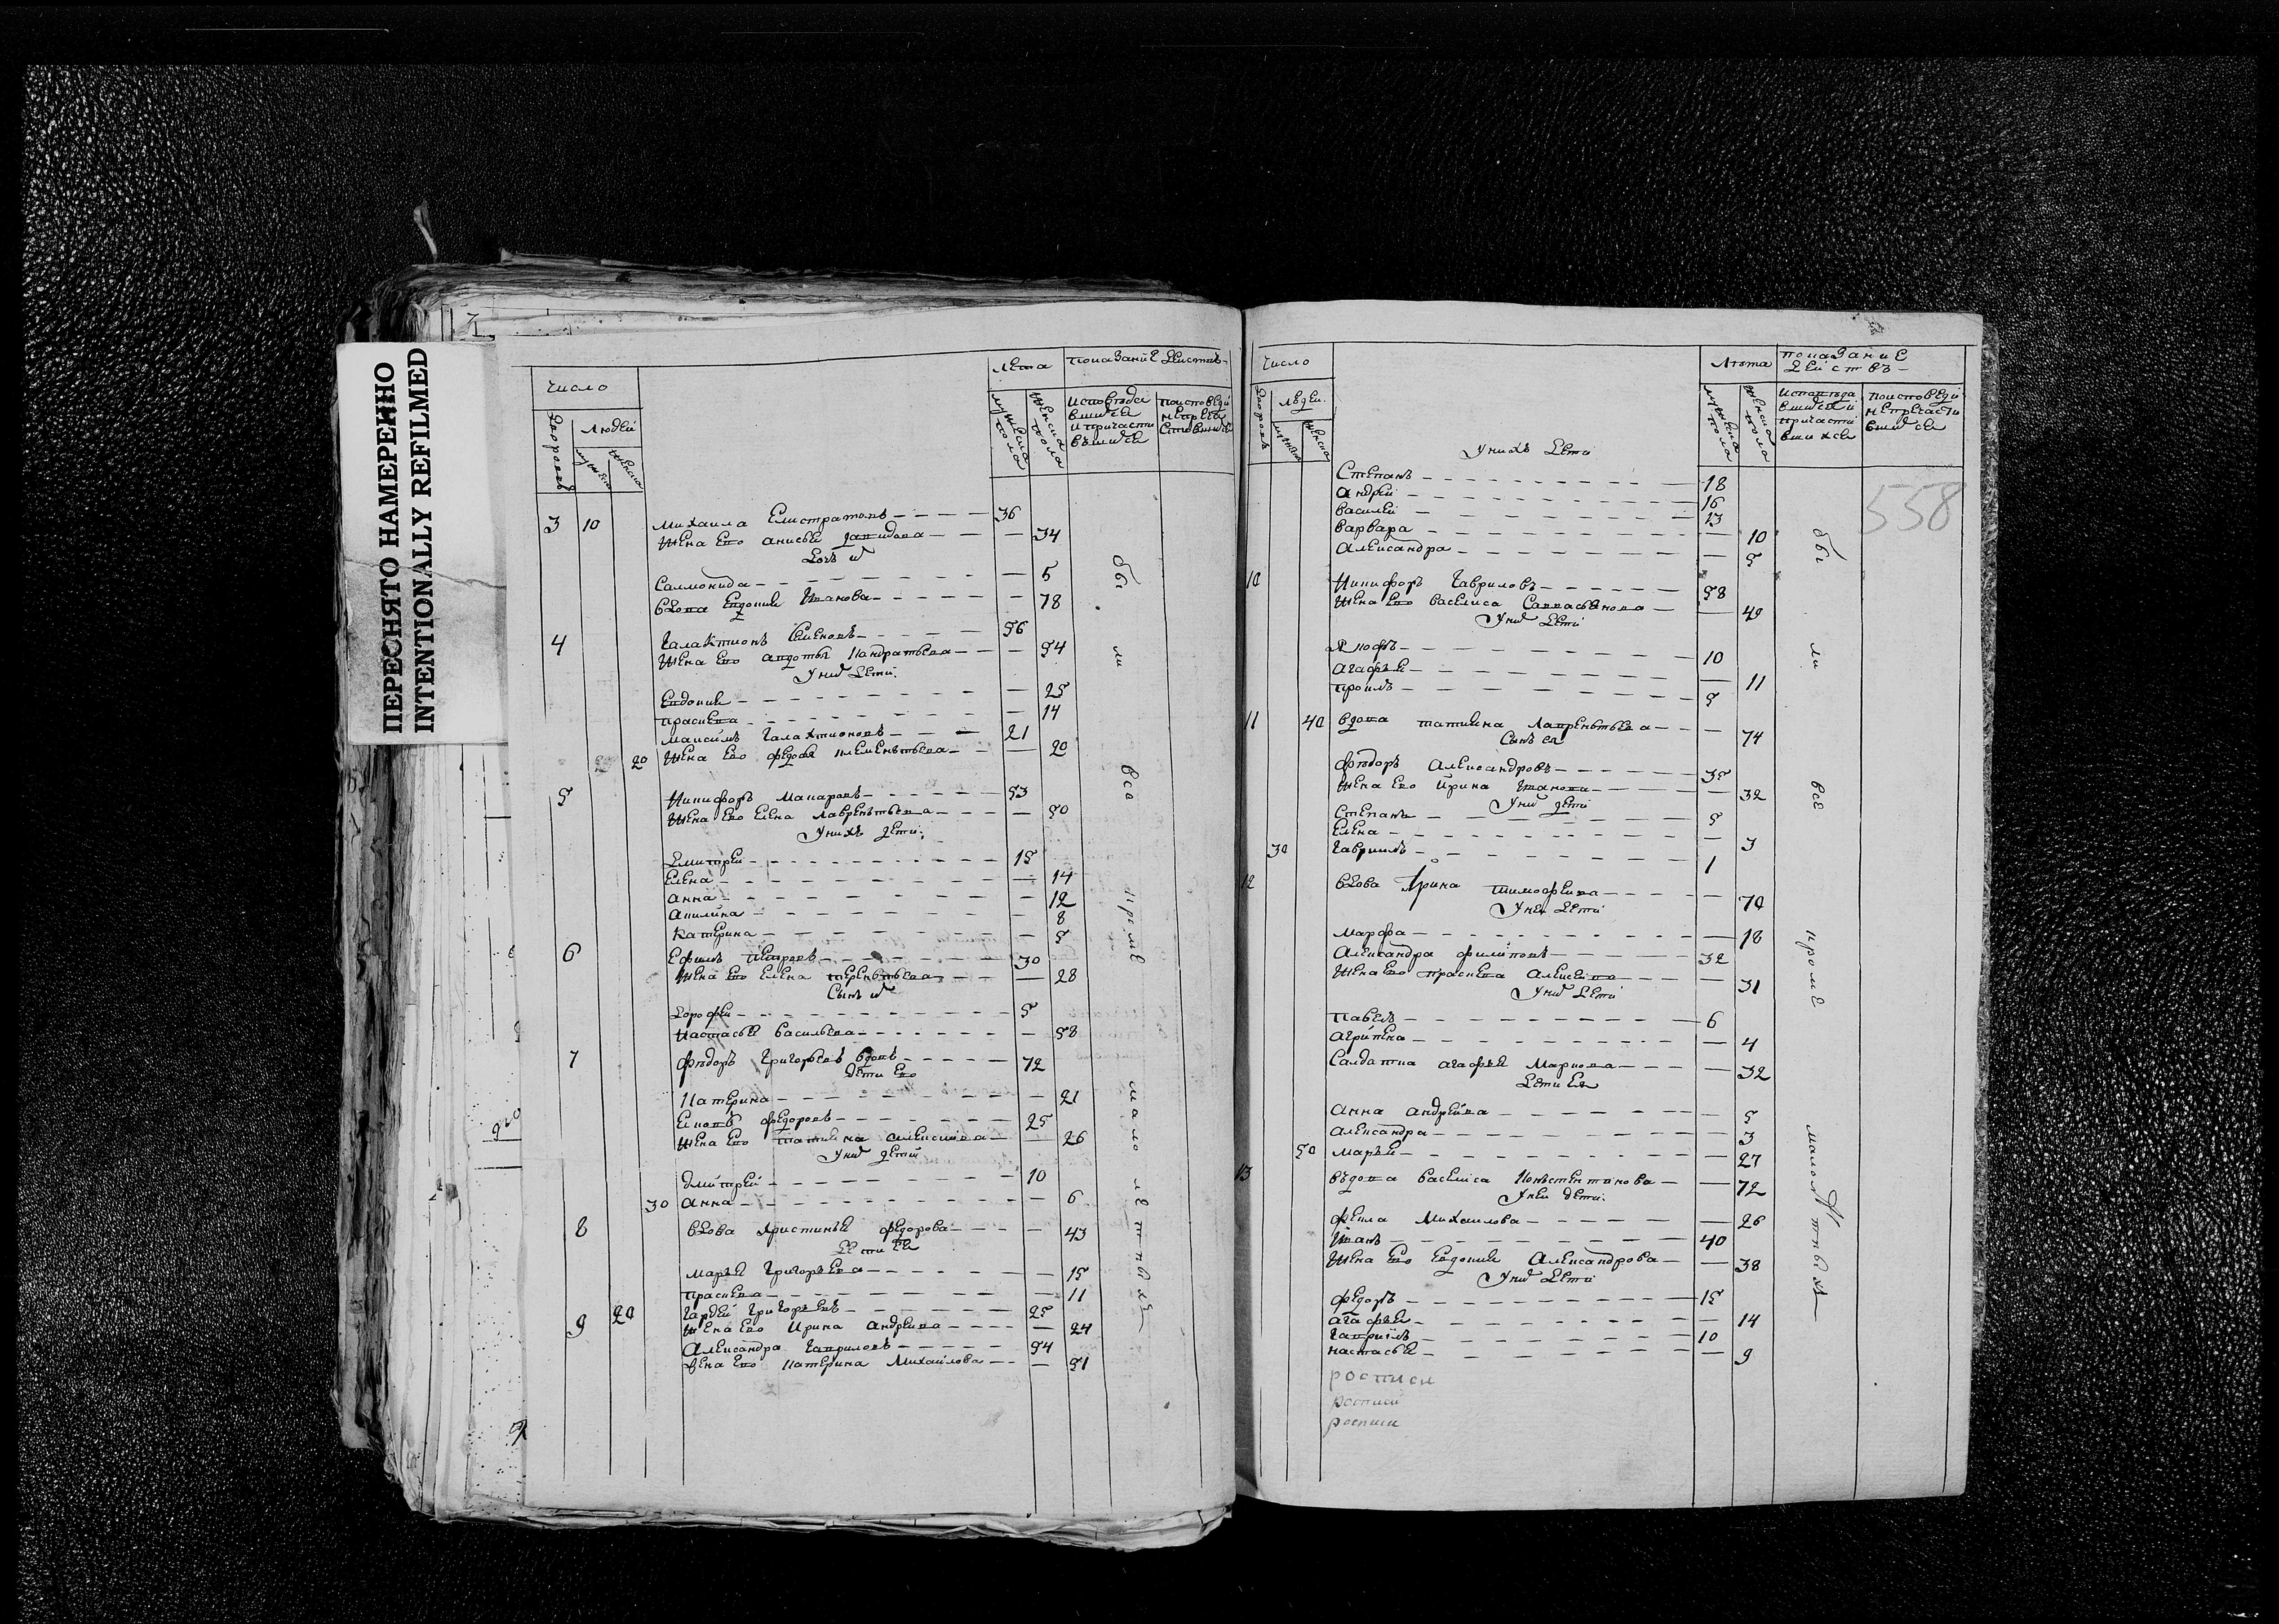 ПЕРЕСНЯТО НАМЕРЕННО
INTENTIONALLY REFILMED
число
людей
дворовъ
мужеска
женска
лета
мужеска пола
женска пола
показание действъ
исповеда
вшихся
и причасти
вшихся
3 10 михаила Елистратовъ 36
жена ево анисья давидова 34
дочь их
Саломонида 5
вдова Евдокия Иванова 78
4 Галактионъ Семеновъ 56
жена ево авдотья Кондратьева 54
у них дети
Евдокия 25
прасковья 14
максимъ Галактионовъ 21
20 жена ево федосья клементьева 20
5 Никифоръ макаровъ 53
жена ево Елена лаврентьева 50
у нихъ дети
Дмитрей 15
Елена 14
анна 12
акилина 8
Катерина 5
6 Ефимъ петровъ 30
жена ево Елена терентьева 28
Сынъ их
Дорофей 5
настасья васильева 58
7 федоръ Григорьевъ вдовъ 72
дети ево
Катерина 21
федоровъ 25
жена ево татияна алексиева 26
у них дети
дмитрей 10
30 анна 6
8 вдова христинья федорова 43
дети ея
марья Григорьева 15
прасковья 11
20 Гордей Григорьевъ 25
жена ево Ирина андреева 24
9 Александра Гавриловъ 54
жена ево катерина Михайлова 51
были все кроме малолетныхъ
число
дворовъ
людей
мужска
женска
лета
мужеска пола
женска пола
показание
действъ
исповеда
вшихся и
причасти
вшихся
поисповеди
непричасти
вшихся
558
у нихъ дети
Степанъ 18
андрей 16
василей 13
варвара 10
Александра 5
10 Никифоръ Гавриловъ 58
жена ево василиса 49
у них дети
агафья 11
5
11 40 вдова татияна лаврентьева 74
Сынъ ея
федоръ Александровъ 35
жена ево Ирина Иванова 32
у них дети
Степанъ 5
Елена 3
30 Гаврилъ 1
12 вдова Ирина тимофеива 70
у ней дети
марфа 18
Александра филиповъ 32
жена ево прасковья Алексеева 31
у них дети
павелъ 6
агрипена 4
Салдатка агафья Маркова 32
дети ея
анна андреива 5
александра 3
50 марья 27
13 въдова василиса Констентинова 72
у ней дети
фекла михаилова 26
Иванъ 40
жена ево Евдокия Александрова 38
у них дети
федоръ 15
агафья 14
Гаврилъ 10
настасья 9
росписи
росписи
росписи
были все кроме малолетныхъ